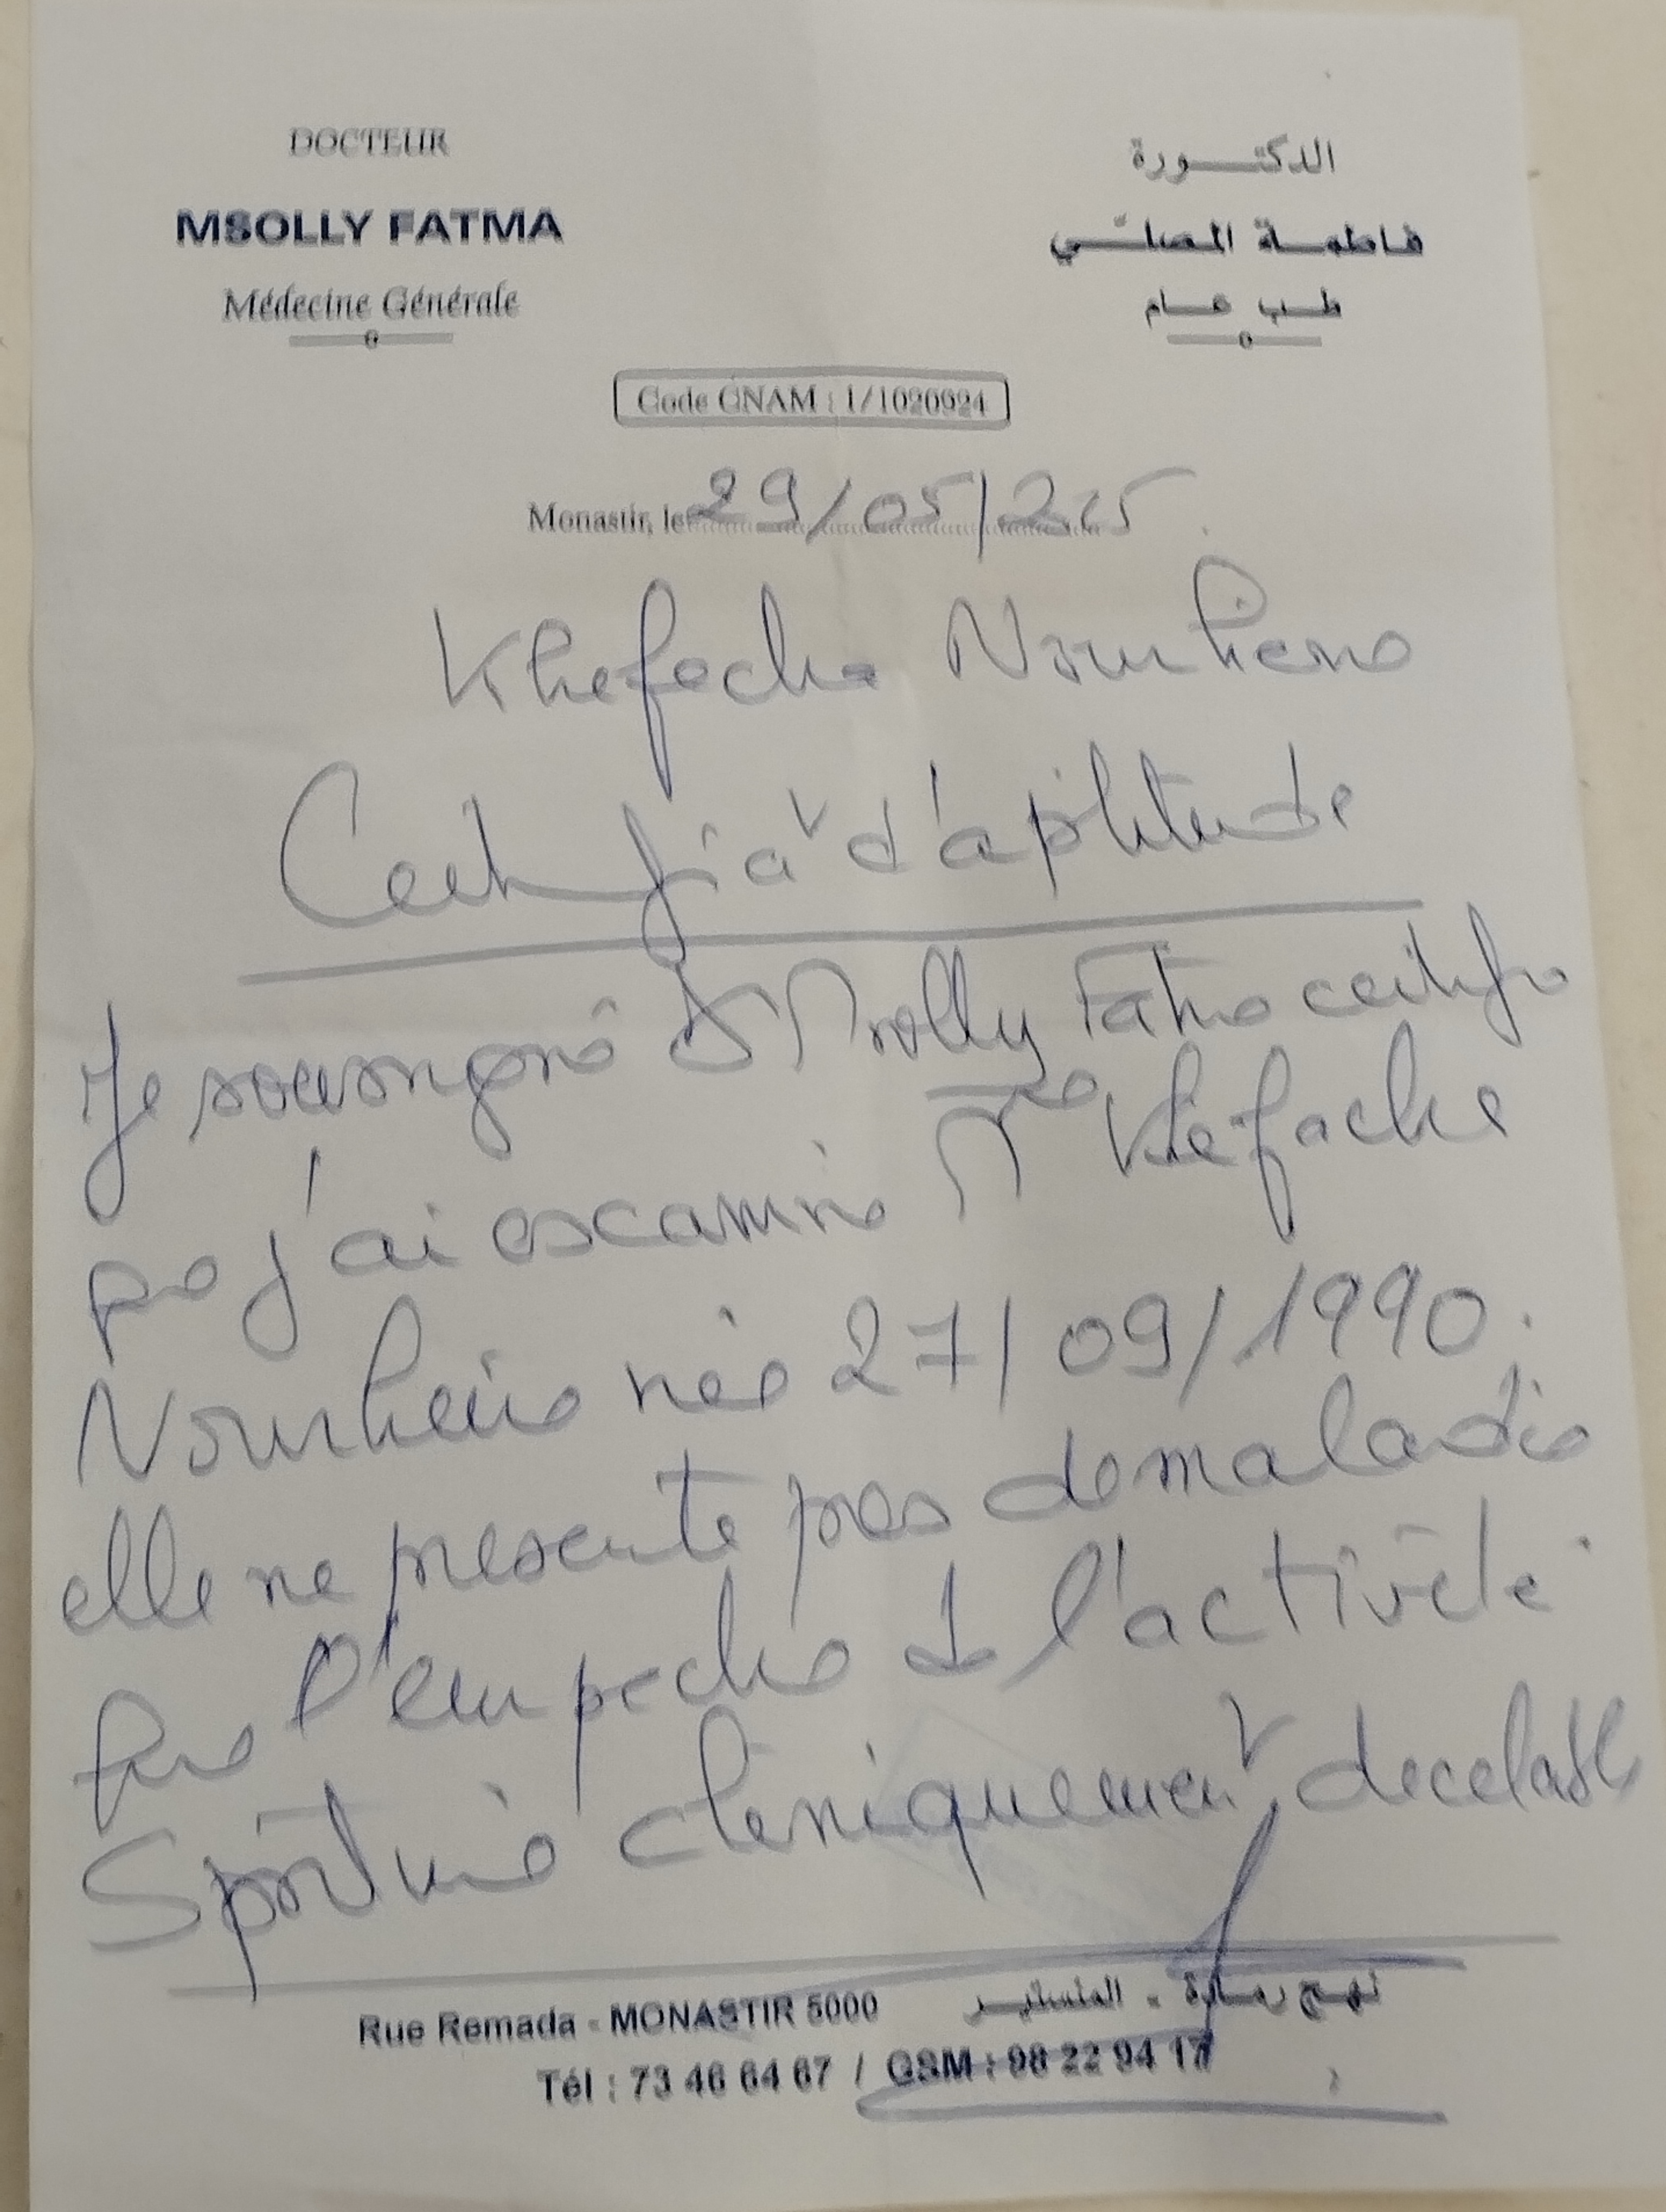 DOCTEUR
MSOLLY FATMA
Médecine Générale
الدكتـــورة
فاطمـة المصلـّـي
طـب عـام
Code CNAM : 1/1020924
Monastir, le 29/05/2025
Khefacha Nourhene
Certificat d'aptitude
Je soussigné Dr Msolly Fatma certifie
que j'ai examiné Mme Khefacha
Nourhene née 27/09/1990.
elle ne présente pas de maladie
l'empeche de l'activité.
Sportive cliniquement decelable
Rue Remada - MONASTIR 5000
نهـج رمـادة - المنستيـر
Tél : 73 46 64 67 / GSM : 98 22 94 17